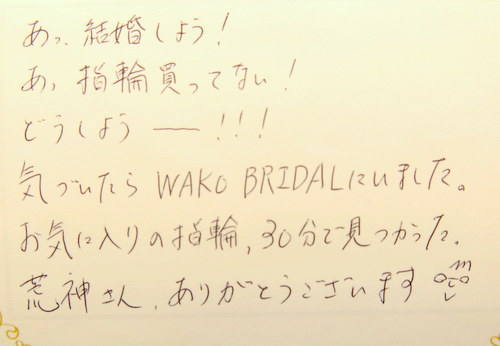 あっ、結婚しよう!
あ、指輪買ってない!
どうしよう ー!!!
気づいたら WAKO BRIDALにいました。
お気に入りの指輪、30分で見つかった。
荒神さん、ありがとうございます